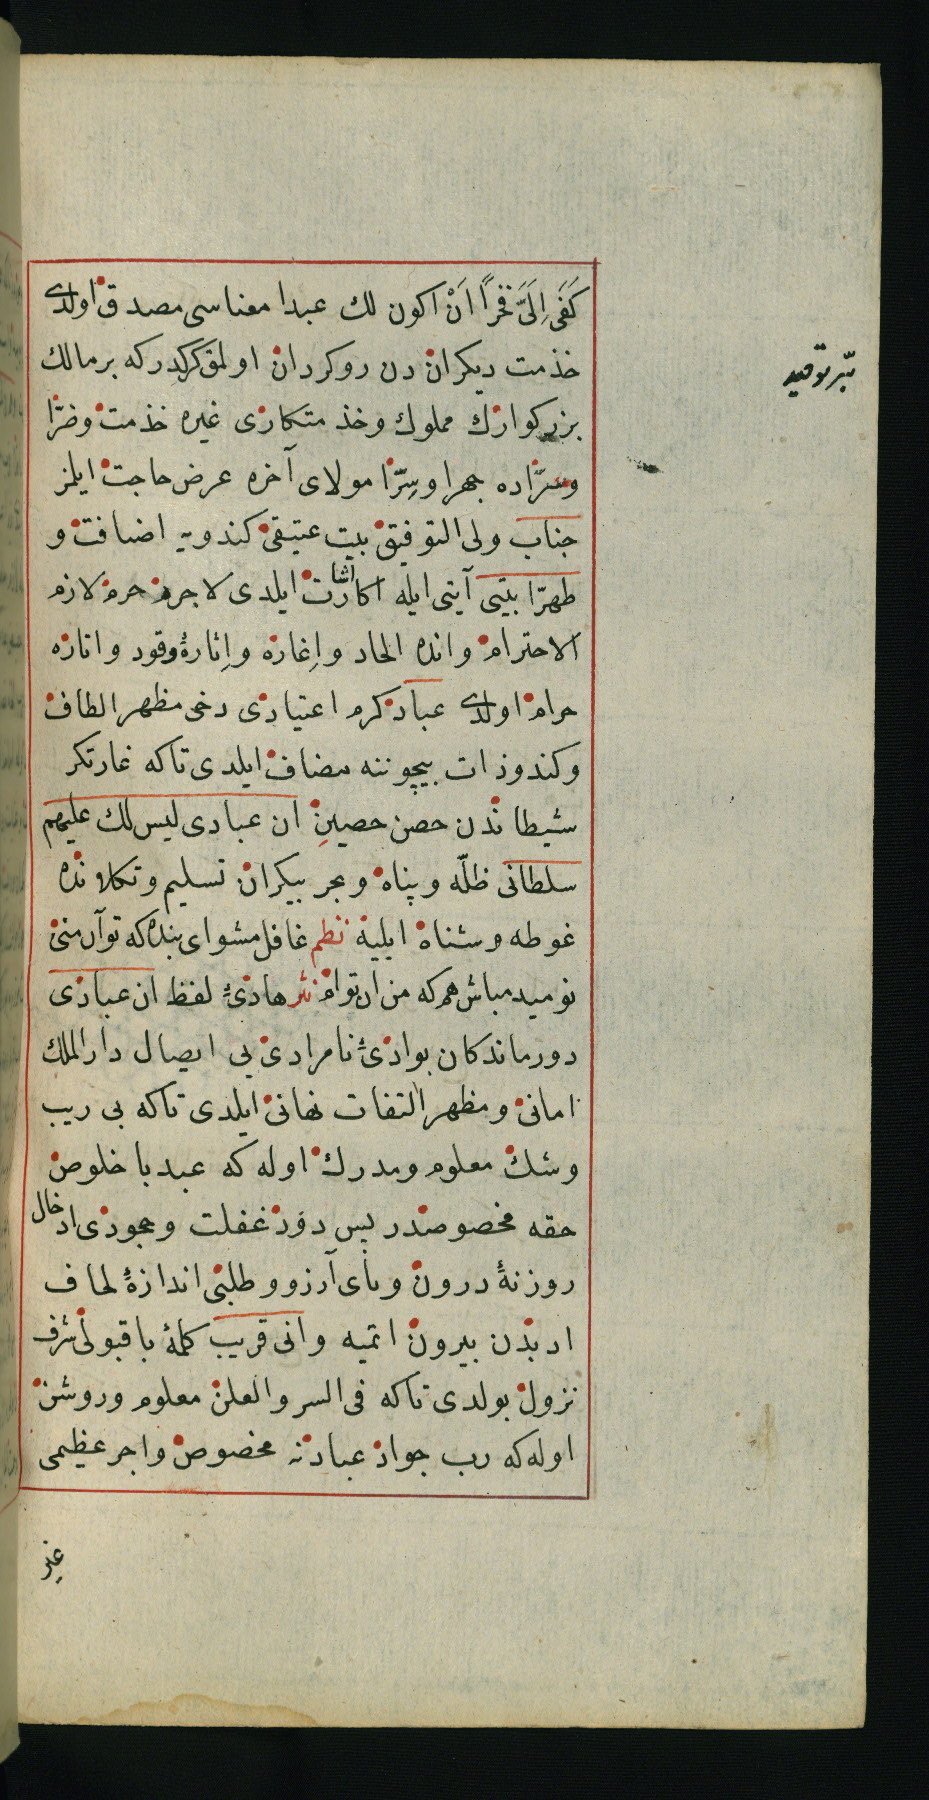 كَفَى اِلَىَّ فخراً اَنْ اكون لك عبدا معناسى مصدق اولدى
خذمت ديكران دن روكردان اولمق كركدر كه بر مالك
بزركوارك مملوك وخذمتكارى غيره خذمت وضرّا
وسرّاده جهرا وسِرّا مولاى آخره عرض حاجت ايلمز
جناب ولى التوفيق بيت عتيقى كندويه اضافت و
طهرّا بيتى آيتى ايله اكا اشارت ايلدى لاجرم حرم لازم
الاحترام وانده الحاد واِغاره واِثارۀ وقود وانازه
حرام اولدى عباد كرم اعتيادى دخى مظهر الطاف
وكندو ذات بيچوننه مضاف ايلدى تا كه غارتكر
شيطاندن حصن حصينِ ان عبادى ليس لك عليهم
سلطانى ظلّه وپناه وبحر بيكران تسليم وتكلانده
غوطه وشناه ايليه نظم غافل مشو اى بنده كه تو آن منى
نوميد مباش هم كه من ان توام نثر هادئ لفظ ان عبادى
دورماندكان بوادئ نامرادى يى ايصال دار الملك
امانى ومظهر التفات نهانى ايلدى تا كه بى ريب
وشك معلوم ومدرك اوله كه عبد با خلوص
حقه مخصوصدر پس دود غفلت وجحودى ادخال
روزنۀ درون وپاى آرزو وطلبنى اندازۀ لحاف
ادبدن بيرون اتميه وانى قريب كلمۀ با قبولى شرف
نزول بولدى تا كه فى السر والعلن معلوم وروشن
اوله كه رب جواد عبادنه مخصوص واجر عظيمى
غير